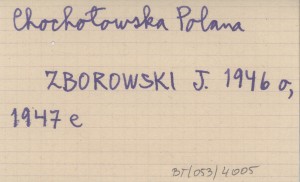 Chochołowska Polana
ZBOROWSKI J. 1946 o,
1947 e
BT/053/4005